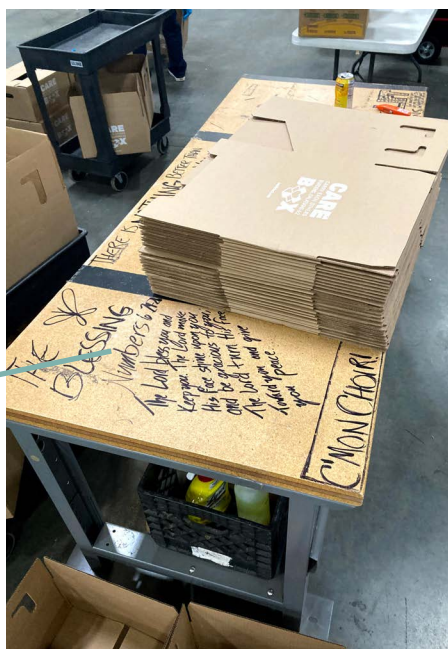 THERE IS NOTHING BETTER THAN
CARE
BOX
THE
BLESSING
Numbers 6
The Lord bless you and
Keep you The Lord make
His face shine upon you
and be gracious to you,
The Lord turn His face
toward you and give
you peace
C'MON CHOIR!
CARE